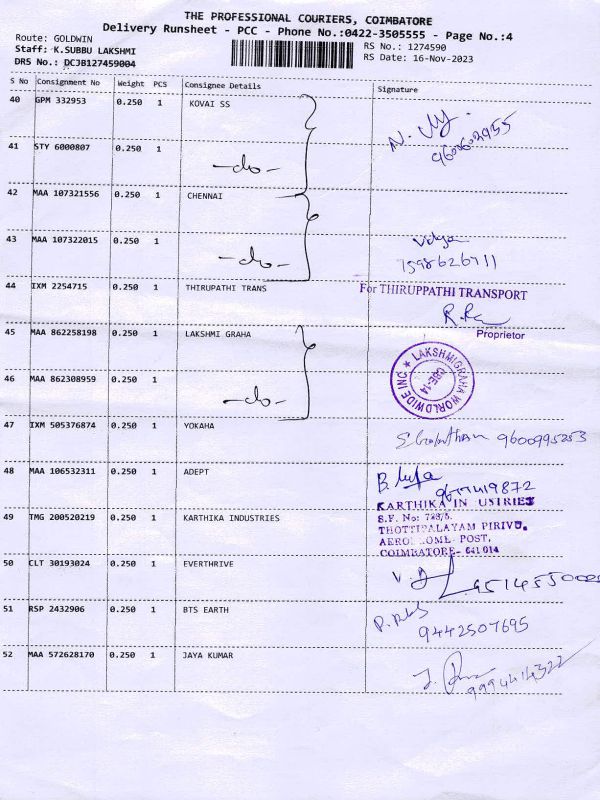 THE PROFESSIONAL COURIERS, COIMBATORE
Delivery Runsheet - PCC - Phone No.:0422-3505555 - Page No.:4
Route: GOLDWIN
Staff: K.SUBBU LAKSHMI
DRS No.: DCJB127459004
RS No.: 1274590
RS Date: 16-Nov-2023
S No Consignment No Weight PCS Consignee Details Signature
40 GPM 332953 0.250 1 KOVAI SS
41 STY 6000807 0.250 1
-do-
42 MAA 107321556 0.250 1 CHENNAI
43 MAA 107322015 0.250 1 Vidya
-do- 7598626711
44 IXM 2254715 0.250 1 THIRUPATHI TRANS For THIRUPPATHI TRANSPORT
Proprietor
45 MAA 862258198 0.250 1 LAKSHMI GRAHA
LAKSHMIGRAHA WORLDWIDE INC
CBE-14
46 MAA 862308959 0.250 1
-do-
47 IXM 505376874 0.250 1 YOKAHA 9600995253
48 MAA 106532311 0.250 1 ADEPT
49 TMG 200520219 0.250 1 KARTHIKA INDUSTRIES
KARTHIKA IN USTRIES
S.F. No: 728/5,
THOTTIPALAYAM PIRIVU,
POST,
COIMBATORE- 641 014
50 CLT 30193024 0.250 1 EVERTHRIVE
51 RSP 2432906 0.250 1 BTS EARTH
9442507695
52 MAA 572628170 0.250 1 JAYA KUMAR
9994414322